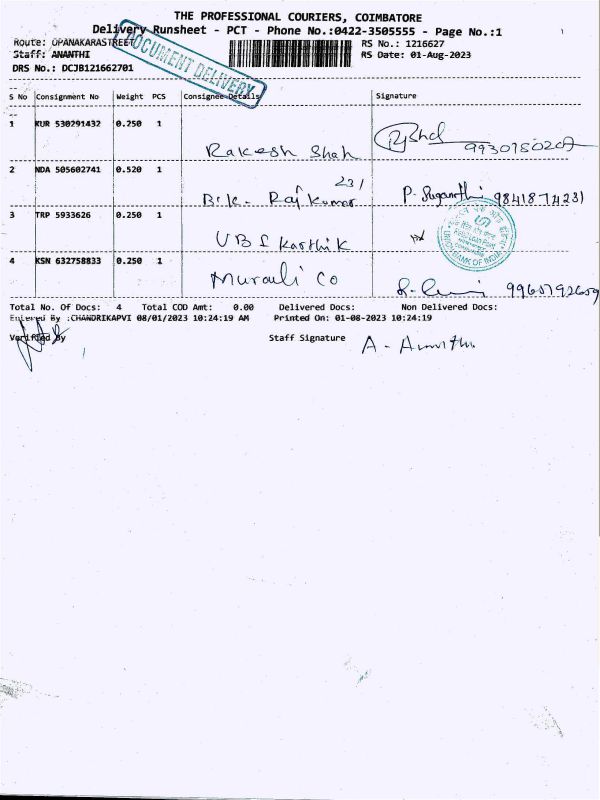 THE PROFESSIONAL COURIERS, COIMBATORE
Delivery Runsheet - PCT - Phone No.:0422-3505555 - Page No.:1
Route: OPANAKARASTREET
RS No.: 1216627
Staff: ANANTHI
RS Date: 01-Aug-2023
DRS No.: DCJB121662701
DOCUMENT DELIVERY
S No Consignment No Weight PCS Consignee Details Signature
1 KUR 530291432 0.250 1
Rakesh Shah
2 NDA 505602741 0.520 1
231
Raj Kumar
P. Suganthi 9841874231
3 TRP 5933626 0.250 1
UBI Karthik
UNION BANK OF INDIA
4 KSN 632758833 0.250 1
Murauli Co
9965792659
Total No. Of Docs: 4 Total COD Amt: 0.00 Delivered Docs: Non Delivered Docs:
Entered By :CHANDRIKAPVI 08/01/2023 10:24:19 AM Printed On: 01-08-2023 10:24:19
Verified By
Staff Signature